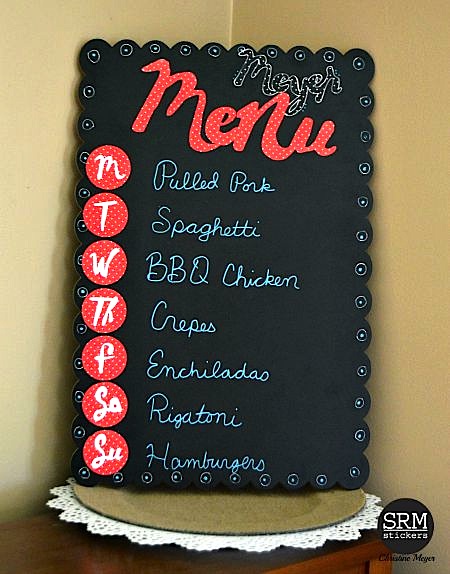 Meyer
Menu
M Pulled Pork
T Spaghetti
W BBQ Chicken
Th Crepes
f Enchiladas
Sa Rigatoni
Su Hamburgers
SRM
stickers
Christine Meyer